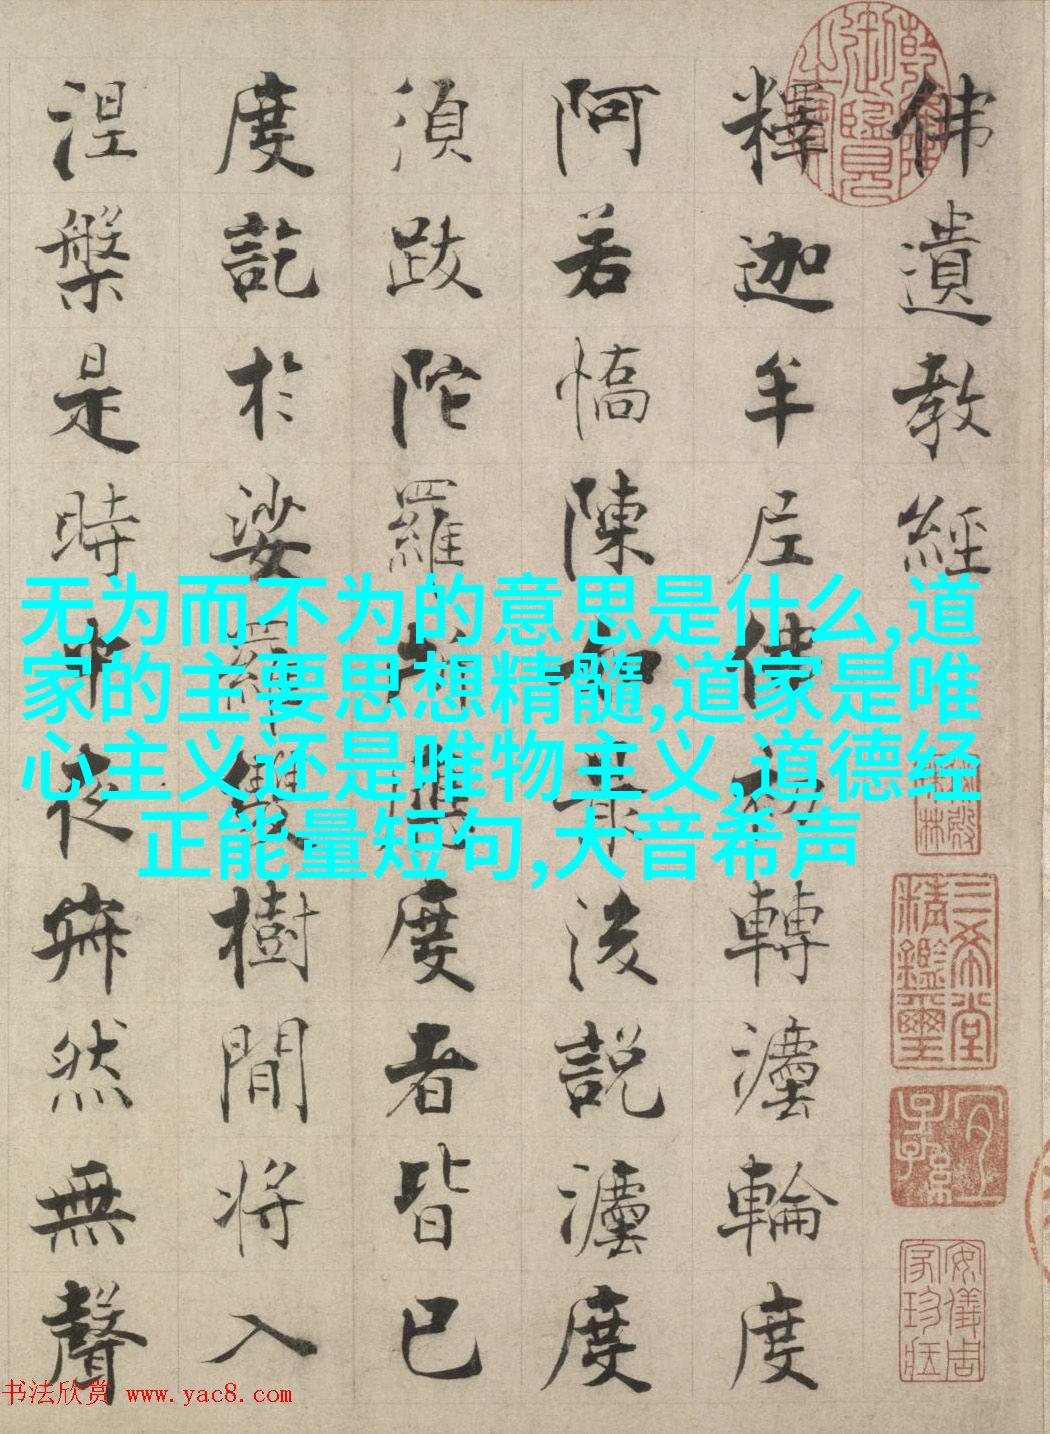 佛遺教經
釋迦牟尼佛初轉灋輪度
阿若憍陳如最後說灋度
須跋陀羅所應度者皆已
度訖於娑羅雙樹間將入
涅槃是時中夜寂然無聲
无为而不为的意思是什么,道
家的主要思想精髓,道家是唯
心主义还是唯物主义,道德经
正能量短句,大音希声
乾隆御覽之寶
三希堂精鑑璽
宜子孫
安儀周家珍藏
书法欣赏 www.yac8.com